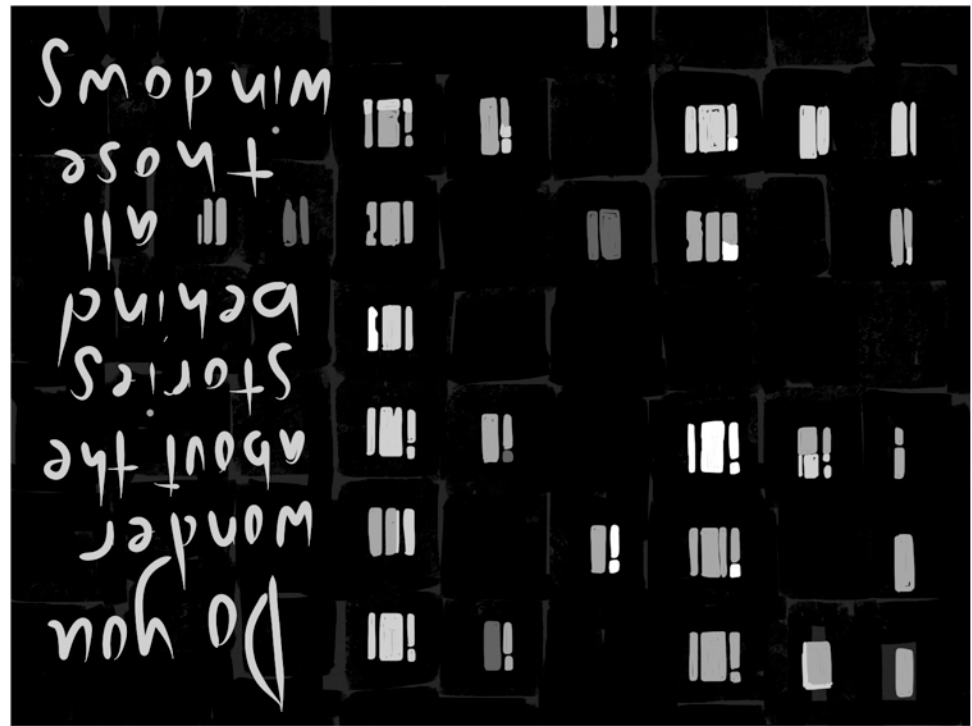 Do you
wonder
about the
stories
behind
all
those
windows